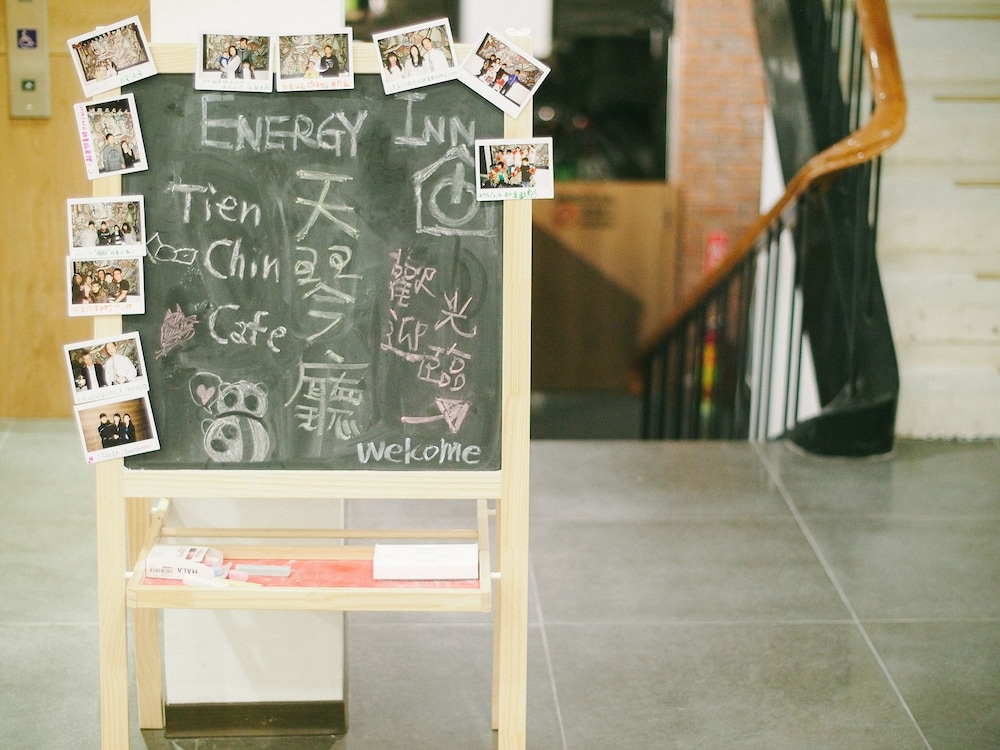 ENERGY INN
Tien
Chin
Cafe
天琴廳
歡迎
光臨
welcome
MÅLA